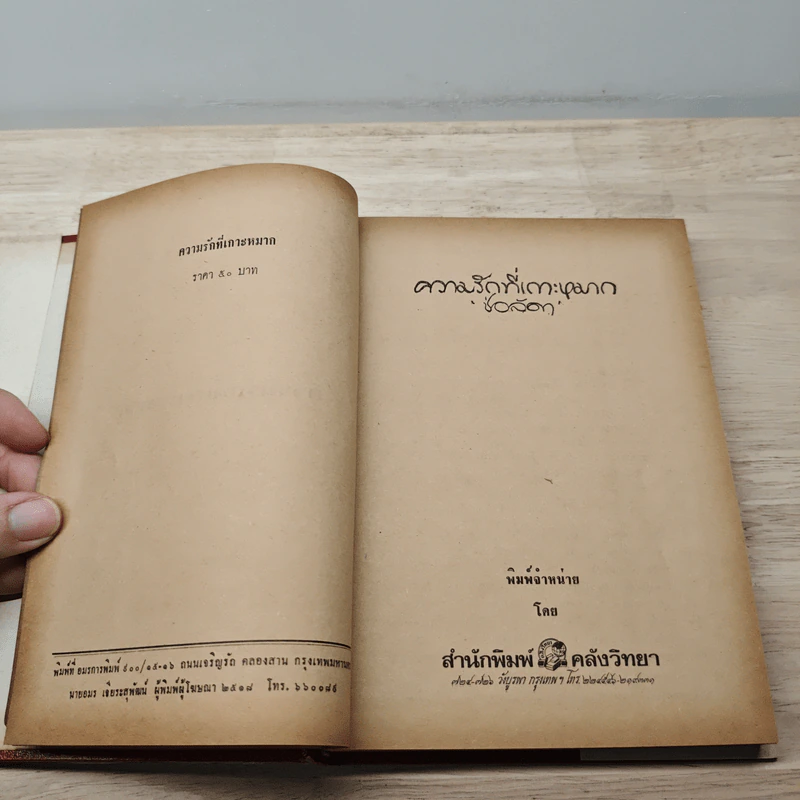 ความรักที่เกาะหมาก
ราคา ๕๐ บาท
พิมพ์ที่ อมรการพิมพ์ ๙๐๐/๑๕-๑๖ ถนนเจริญรัถ คลองสาน กรุงเทพมหานคร
นายอมร เจียระสุพัฒน์ ผู้พิมพ์ผู้โฆษณา ๒๕๑๘ โทร.
ความรักที่เกาะหมาก
ชอลัดา
พิมพ์จำหน่าย
โดย
สำนักพิมพ์ คลังวิทยา
๗๒๔-๗๒๖ วังบูรพา กรุงเทพฯ โทร.